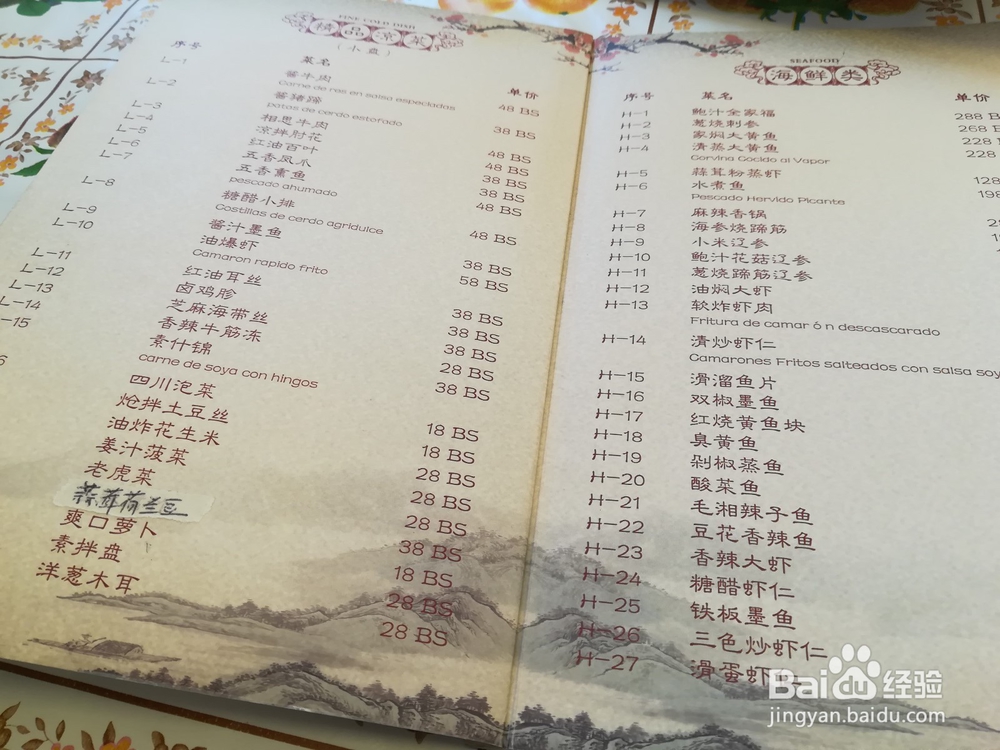 FINE COLD DISH
精品凉菜
(小盘)
序号 菜名 单价
L-1 酱牛肉 48 BS
Carne de res en salsa especiadas
L-2 酱猪蹄 38 BS
patas de cerdo estofado
L-3 相思牛肉 48 BS
L-4 凉拌肘花 48 BS
L-5 红油百叶 38 BS
L-6 五香凤爪 38 BS
L-7 五香熏鱼 48 BS
pescado ahumado
L-8 糖醋小排 48 BS
Costillas de cerdo agridulce
L-9 酱汁墨鱼 38 BS
L-10 油爆虾 58 BS
Camaron rapido frito
L-11 红油耳丝 38 BS
L-12 卤鸡胗 38 BS
L-13 芝麻海带丝 38 BS
L-14 香辣牛筋冻 28 BS
-15 素什锦 38 BS
carne de soya con hingos
四川泡菜 18 BS
炝拌土豆丝 18 BS
油炸花生米 28 BS
姜汁菠菜 28 BS
老虎菜 28 BS
蒜茸荷兰豆 38 BS
爽口萝卜 18 BS
素拌盘 28 BS
洋葱木耳 28 BS
SEAFOOD
海鲜类
序号 菜名 单价
H-1 鲍汁全家福 288 B
H-2 葱烧刺参 268
H-3 家焖大黄鱼 228
H-4 清蒸大黄鱼 228
Corvina Cocido al Vapor
H-5 蒜茸粉蒸虾 128
H-6 水煮鱼 198
Pescado Hervido Picante
H-7 麻辣香锅
H-8 海参烧蹄筋
H-9 小米辽参
H-10 鲍汁花菇辽参
H-11 葱烧蹄筋辽参
H-12 油焖大虾
H-13 软炸虾肉
Fritura de camar ó n descascarado
H-14 清炒虾仁
Camarones Fritos salteados con salsa soy
H-15 滑溜鱼片
H-16 双椒墨鱼
H-17 红烧黄鱼块
H-18 臭黄鱼
H-19 剁椒蒸鱼
H-20 酸菜鱼
H-21 毛湘辣子鱼
H-22 豆花香辣鱼
H-23 香辣大虾
H-24 糖醋虾仁
H-25 铁板墨鱼
H-26 三色炒虾仁
H-27 滑蛋虾仁
Baidu经验
jingyan.baidu.com